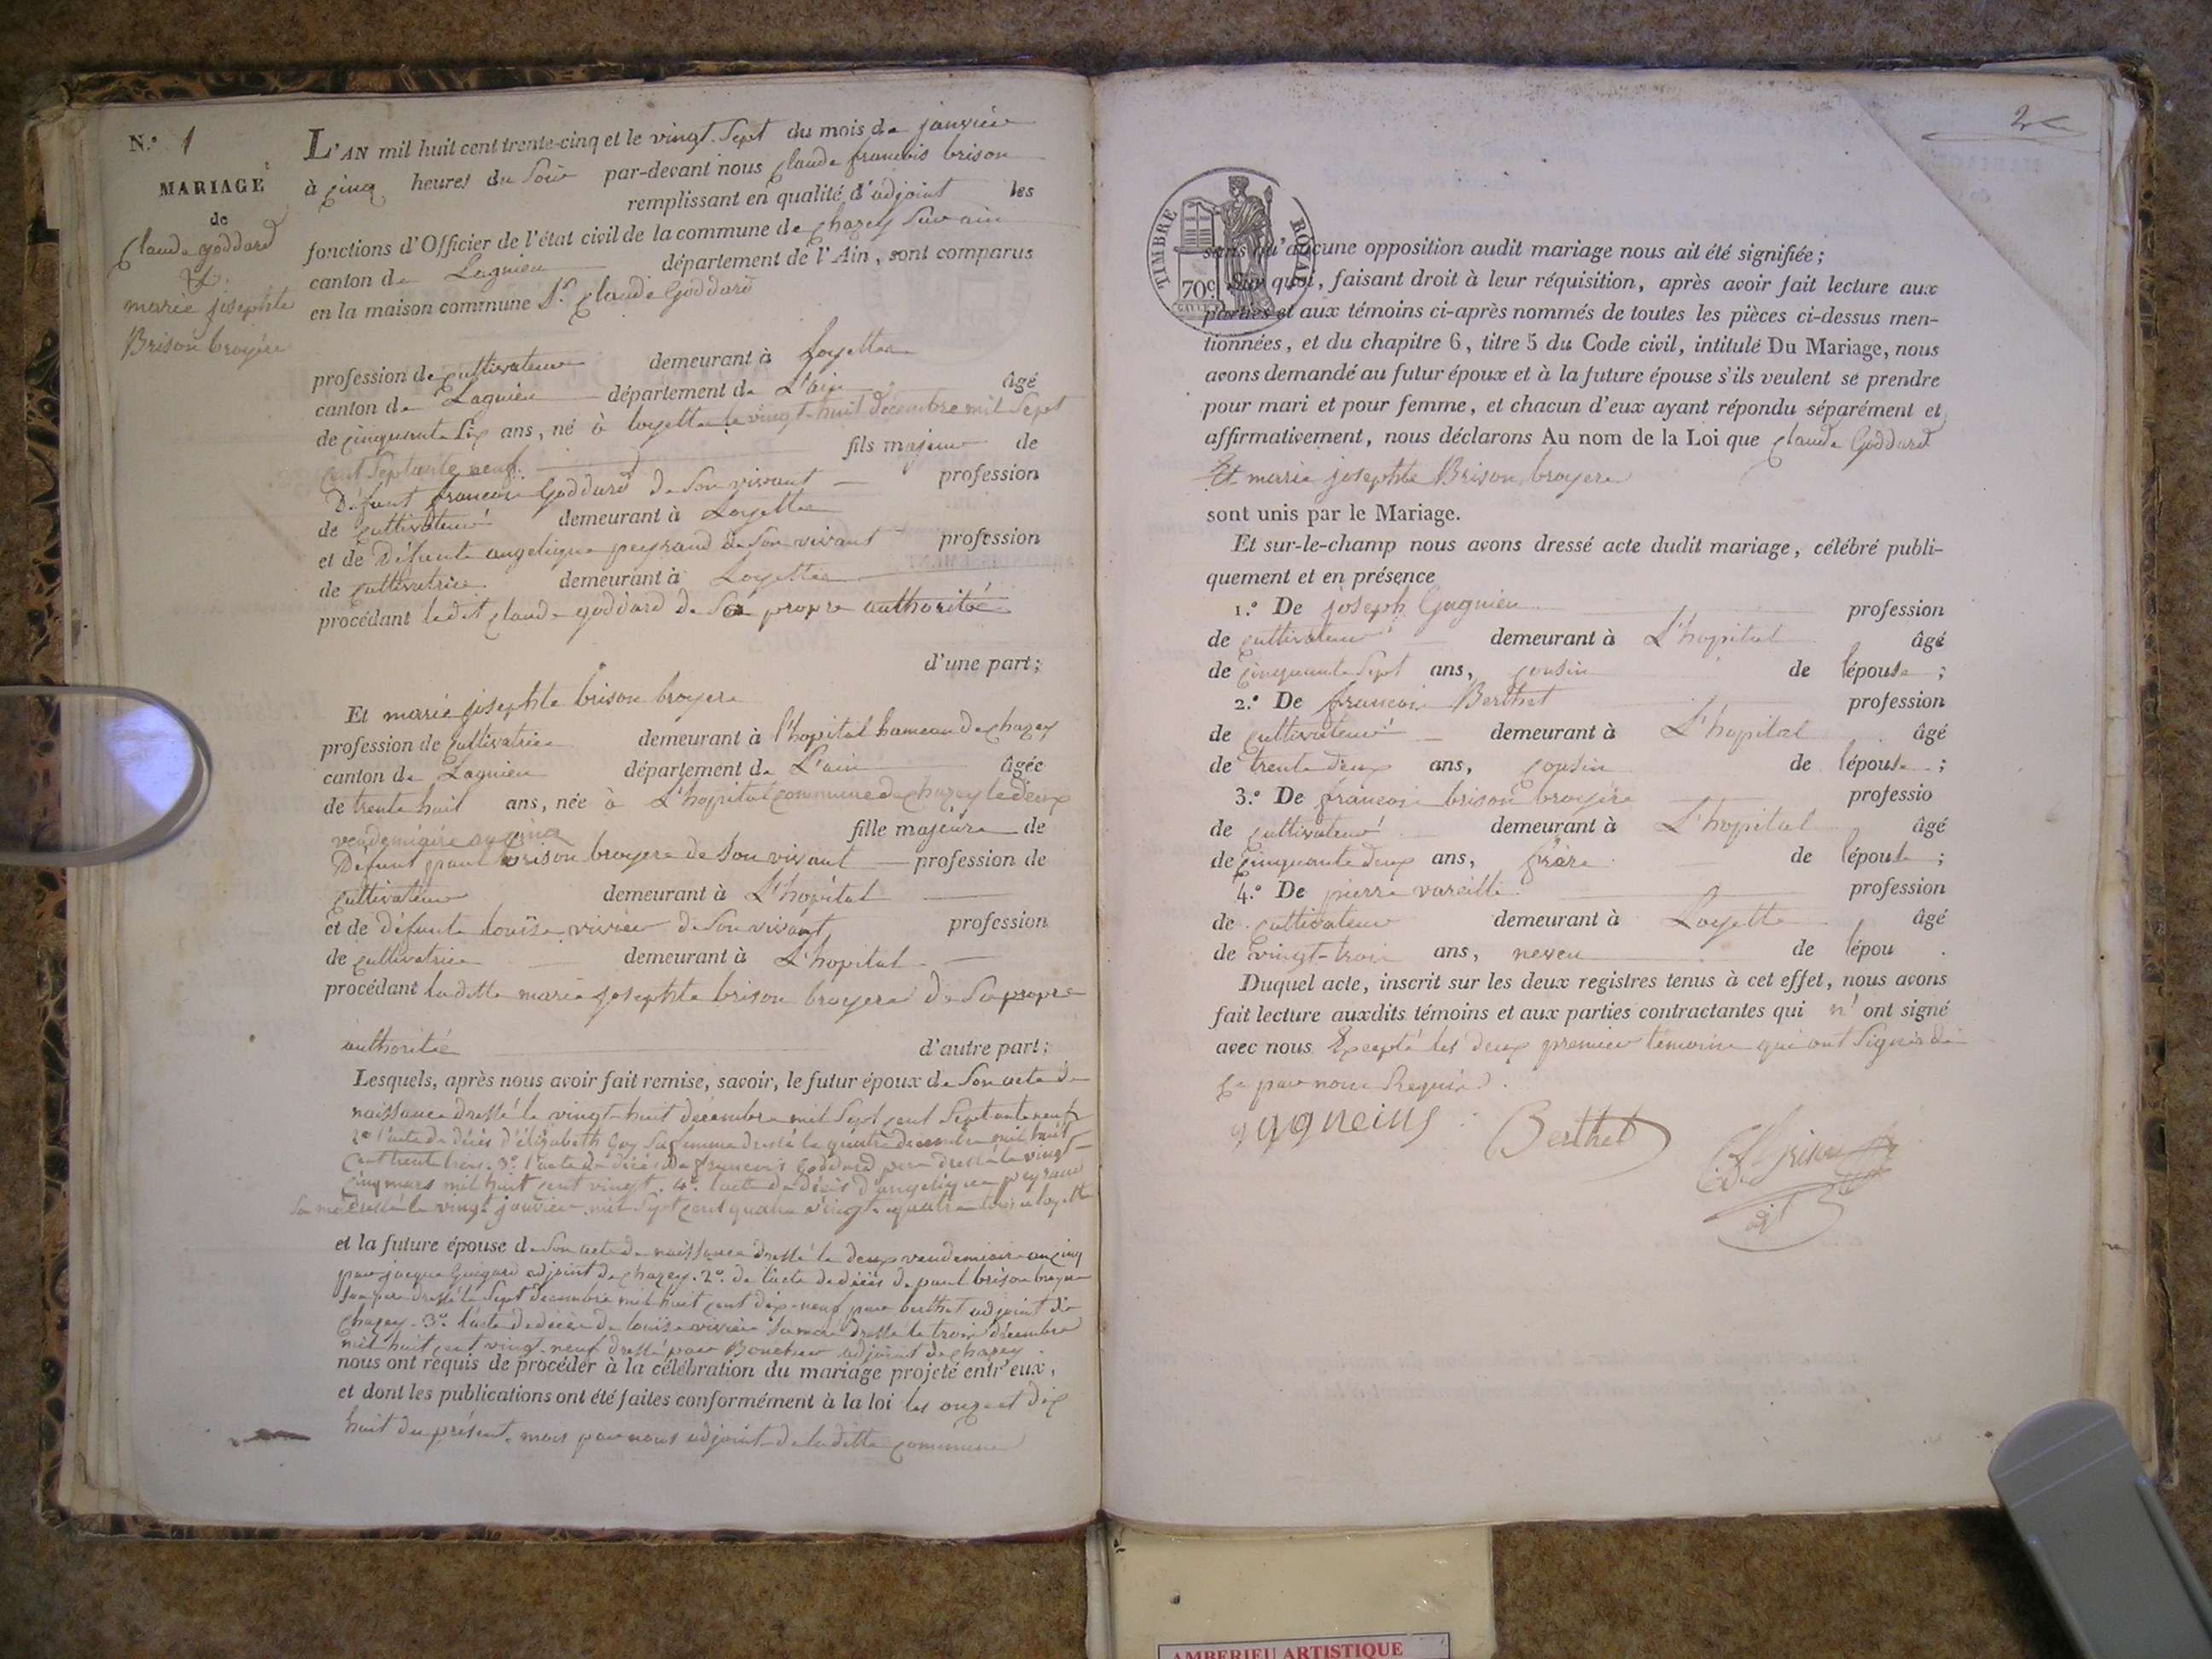 N.° 1
MARIAGE
de
Claude goddard
Et
marie josephte
Brison broyère
L'AN mil huit cent trente-cinq et le vingt-Sept du mois de janvier
à cinq heures du Soir par-devant nous Claude francois brison
remplissant en qualité d'adjoint les
fonctions d'Officier de l'état civil de la commune de chazey Sur ain
canton de Lagnieu département de l'Ain, sont comparus
en la maison commune Sr. Claude Goddard
profession de cultivateur demeurant à Loyettes
canton de Lagnieu département de L'ain âgé
de cinquante Six ans, né à loyettes le vingt-huit décembre mil Sept
cent Septante neuf. fils majeur de
Défunt francois Goddard de Son vivant profession
de cultivateur demeurant à Loyettes
et de Défunte angelique peyraud de Son vivant profession
de cultivatrice demeurant à Loyettes
procédant ledit claude goddard de Sa propre authoritée
d'une part;
Et marie josephte brison broyere
profession de cultivatrice demeurant à l'hopital hameau de chazey
canton de Lagnieu département de L'ain âgée
de trente huit ans, née à L'hopital commune de chazey le deux
vendemiaire an cinq fille majeure de
Défunt paul brison broyere de Son vivant profession de
cultivateur demeurant à L'hopital
et de défunte louise vivier de Son vivant profession
de cultivatrice demeurant à L'hopital
procédant laditte marie josephte brison broyere de Sa propre
authoritée d'autre part;
Lesquels, après nous avoir fait remise, savoir, le futur époux de Son acte de
naissance dressé le vingt-huit décembre mil Sept cent Septante neuf
2° l'acte de décès d'élizabeth Guy Sa femme dressé le quatre decembre mil huit
cent trente trois. 3° l'acte de décès de francois Goddard père dressé le vingt-
cinq mars mil huit cent vingt. 4° l'acte de décès d'angelique peyraud
Sa mère dressé le vingt janvier mil Sept cent quatre vingt-quatre tous a loyettes
et la future épouse de Son acte de naissance dressé le deux vendemiaire an cinq
par jacque Guigard adjoint de chazey. 2° de l'acte de décès de paul brison broyere
Son père dressé le Sept decembre mil huit cent dix-neuf par berthet adjoint de
chazey. 3° l'acte de décès de louise vivier Sa mère dressé le trois décembre
mil huit cent vingt-neuf dressé par Boucher adjoint de chazey.
nous ont requis de procéder à la célébration du mariage projeté entr'eux,
et dont les publications ont été faites conformément à la loi les onze et dix
huit du présent mois par nous adjoint de laditte commune
2
TIMBRE ROYAL
70c
sans qu'aucune opposition audit mariage nous ait été signifiée;
Sur quoi, faisant droit à leur réquisition, après avoir fait lecture aux
parties et aux témoins ci-après nommés de toutes les pièces ci-dessus men-
tionnées, et du chapitre 6, titre 5 du Code civil, intitulé Du Mariage, nous
avons demandé au futur époux et à la future épouse s'ils veulent se prendre
pour mari et pour femme, et chacun d'eux ayant répondu séparément et
affirmativement, nous déclarons Au nom de la Loi que Claude Goddard
Et marie josephte Brison broyere
sont unis par le Mariage.
Et sur-le-champ nous avons dressé acte dudit mariage, célébré publi-
quement et en présence
1.° De joseph Gagnieu profession
de cultivateur demeurant à L'hopital âgé
de cinquante Sept ans, cousin de lépouse;
2.° De francois Berthet profession
de cultivateur demeurant à L'hopital âgé
de trente deux ans, cousin de lépouse;
3.° De francois brison broyère professio
de cultivateur demeurant à L'hopital âgé
de cinquante deux ans, frère de lépouse;
4.° De pierre vareille profession
de cultivateur demeurant à Loyette âgé
de vingt-trois ans, neveu de lépou.
Duquel acte, inscrit sur les deux registres tenus à cet effet, nous avons
fait lecture auxdits témoins et aux parties contractantes qui n'ont signé
avec nous Excepté les deux premier témoins qui ont Signés de
Ce par nous Requis.
gagneius Berthet Brison
adj
AMBERIEU ARTISTIQUE